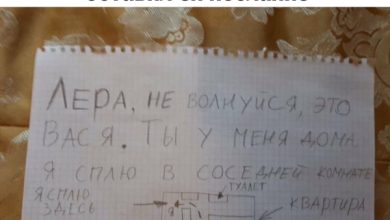 ЛЕРА, НЕ ВОЛНУЙСЯ, ЭТО
ВАСЯ. ТЫ У МЕНЯ ДОМА
Я СПЛЮ В СОСЕДНЕЙ КОМНАТЕ
ТУАЛЕТ
Я СПЛЮ
ЗДЕСЬ
КВАРТИРА